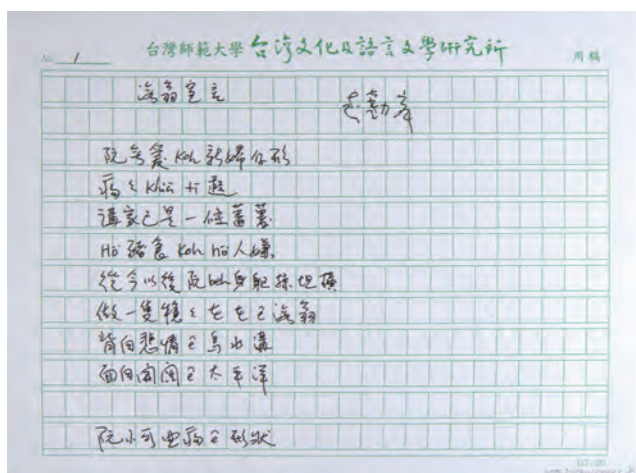 No. 1
台灣師範大學 台灣文化及語言文學研究所
用稿
海翁宣言
李勤岸
阮無愛 Koh 新婦仔形
病々 Khiā tī 遐
講家己是一條蕃薯
Hō͘ 豬食 Koh hō͘ 人嫌
從今以後阮 beh 身軀掠坦橫
做一隻穩々在在 ê 海翁
背向悲情 ê 烏水溝
面向開闊 ê 太平洋
阮小可曲痀 ê 形狀